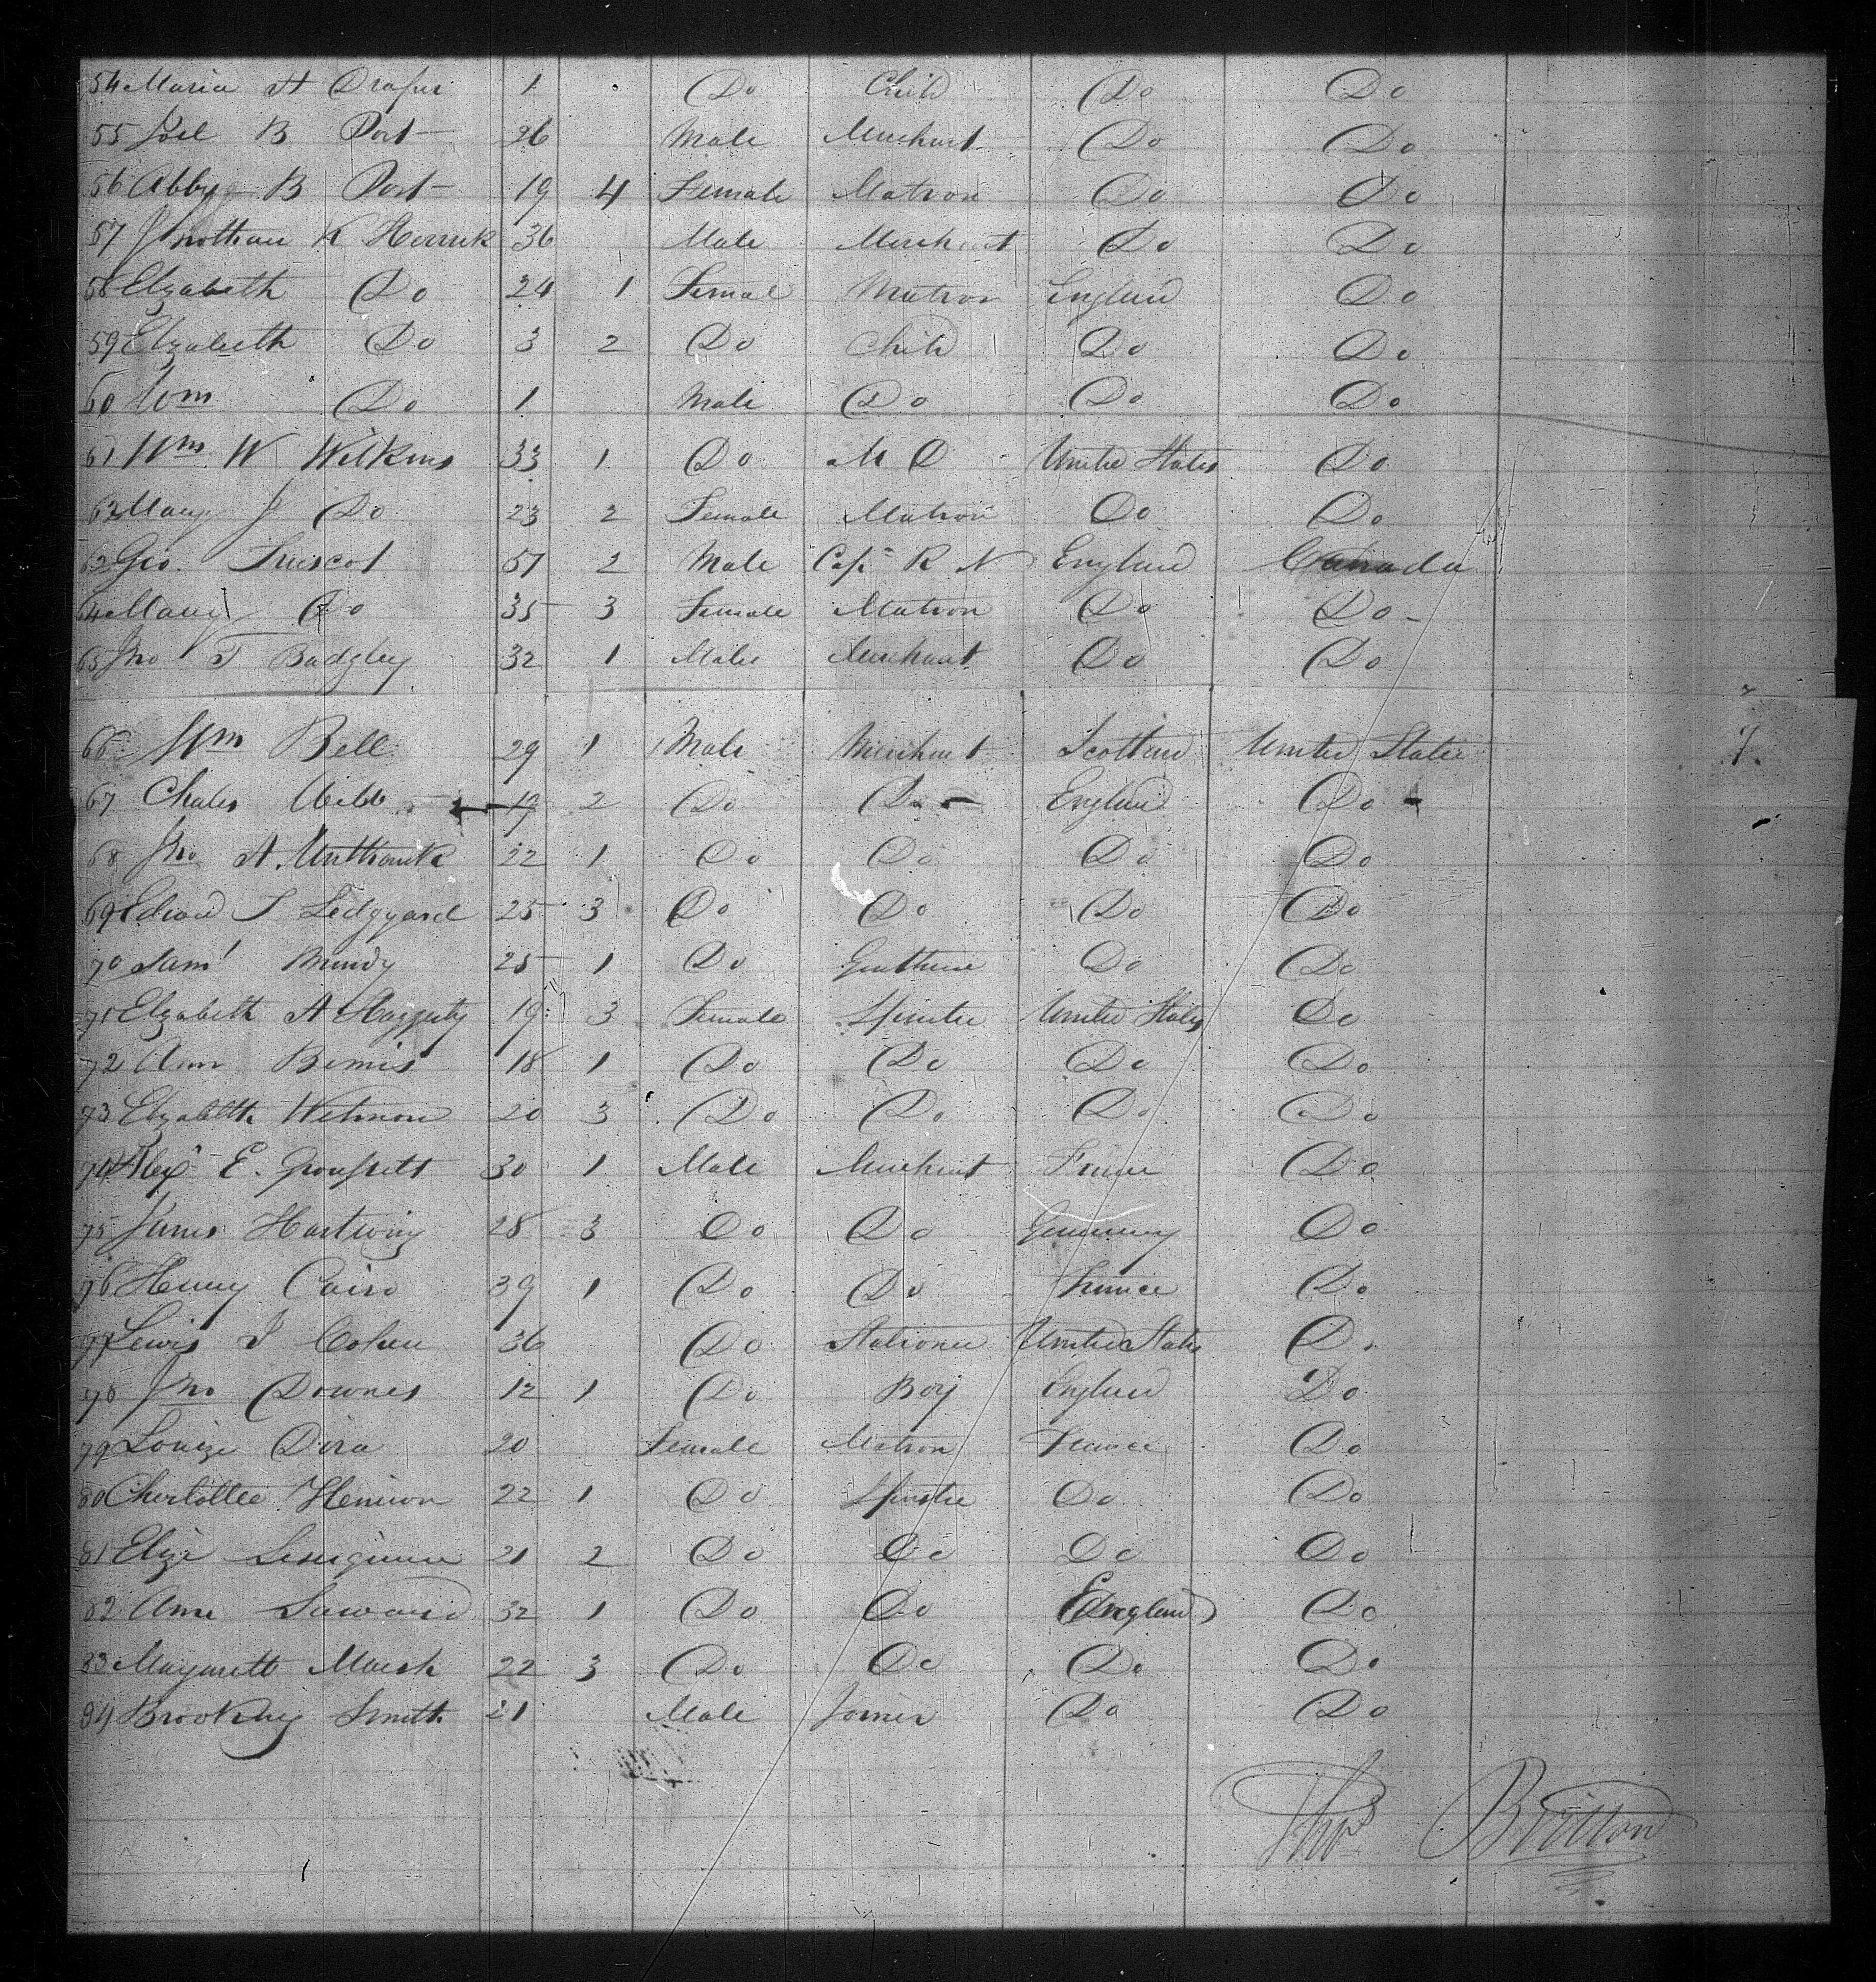 54 Maria A Draper 1 Do Child Do Do
55 Joel B Post 26 Male Merchant Do Do
56 Abby B Post 19 4 Female Matron Do Do
57 Jnothan K Herrick 36 Male Merchant Do Do
58 Elzabeth Do 24 1 Femal Matron England Do
59 Elzabeth Do 3 2 Do Child Do Do
60 Wm Do 1 Male Do Do Do
61 Wm W Wilkins 33 1 Do M D United States Do
62 Mary J Do 23 2 Female Matron Do Do
63 Geo. Truscot 57 2 Male Capt R N England Canada
64 Mary Do 35 3 Female Matron Do Do
65 Jno T Badgley 32 1 Male Merchant Do Do
66 Wm Bell 29 1 Male Merchant Scotland United States 7.
67 Chales Webb 19 2 Do Do England Do
68 Jno A. Unthank 22 1 Do Do Do Do
69 Edwd S Ledgyard 25 3 Do Do Do Do
70 Saml Mundy 25 1 Do Do Do
71 Elzabeth A Haggerty 19 3 Female Spinster United States Do
72 Ann Bemis 18 1 Do Do Do Do
73 Elzabeth Wetmore 20 3 Do Do Do Do
74 Alexr E. 30 1 Male Merchant France Do
75 James Hartwig 28 3 Do Do Germany Do
76 Henry Cairo 39 1 Do Do France Do
77 Lewis J Cohen 36 Do Stationer United States Do
78 Jno Downes 12 1 Do Boy England Do
79 Louize Dira 20 Female Matron France Do
80 Charlottee 22 1 Do Spinster Do Do
81 Eliza 21 2 Do Do Do Do
82 Ann Saward 32 1 Do Do England Do
83 Margarett Marsh 22 3 Do Do Do Do
84 Brooking Smith 21 Male Joiner Do Do
Thos Britton